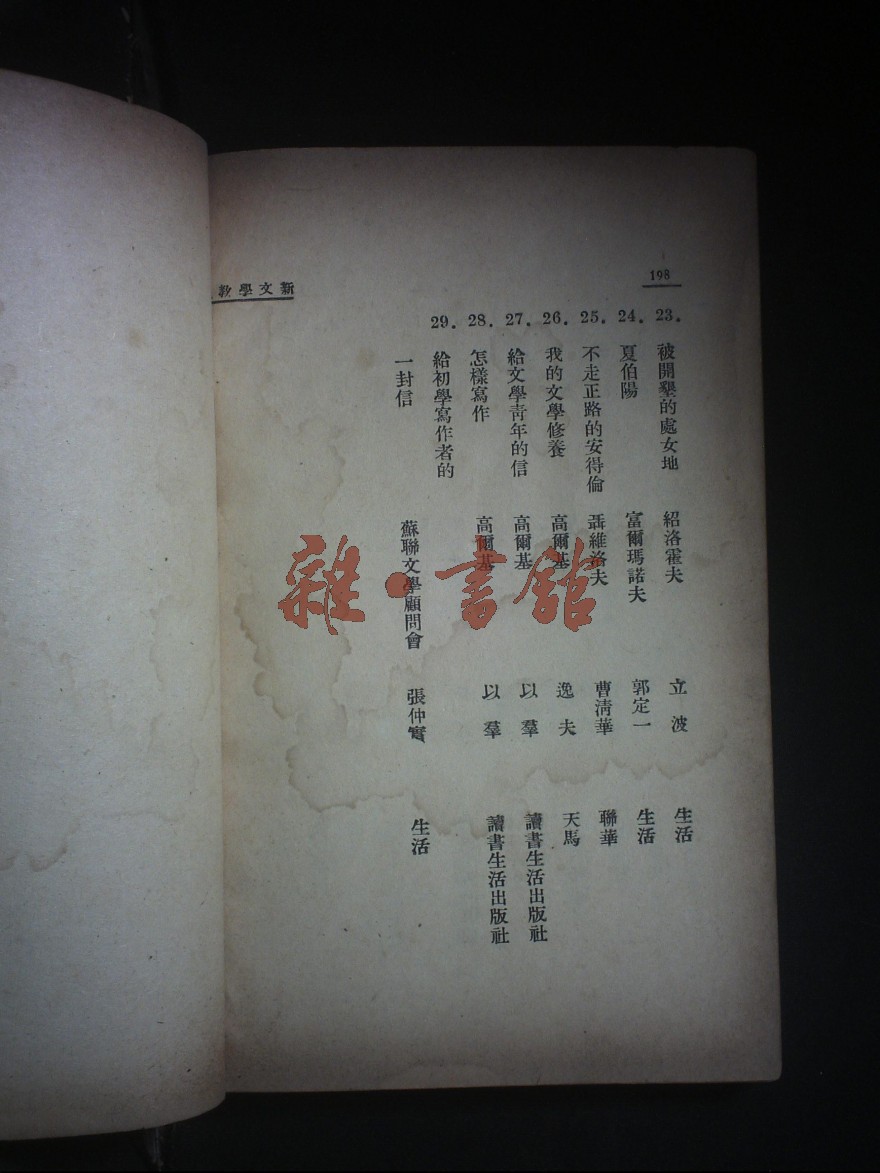 198
新文學教
23. 被開墾的處女地 紹洛霍夫 立波 生活
24. 夏伯陽 富爾瑪諾夫 郭定一 生活
25. 不走正路的安得倫 聶維洛夫 曹清華 聯華
26. 我的文學修養 高爾基 逸夫 天馬
27. 給文學青年的信 高爾基 以羣 讀書生活出版社
28. 怎樣寫作 高爾基 以羣 讀書生活出版社
29. 給初學寫作者的
一封信 蘇聯文學顧問會 張仲實 生活
雜·書館